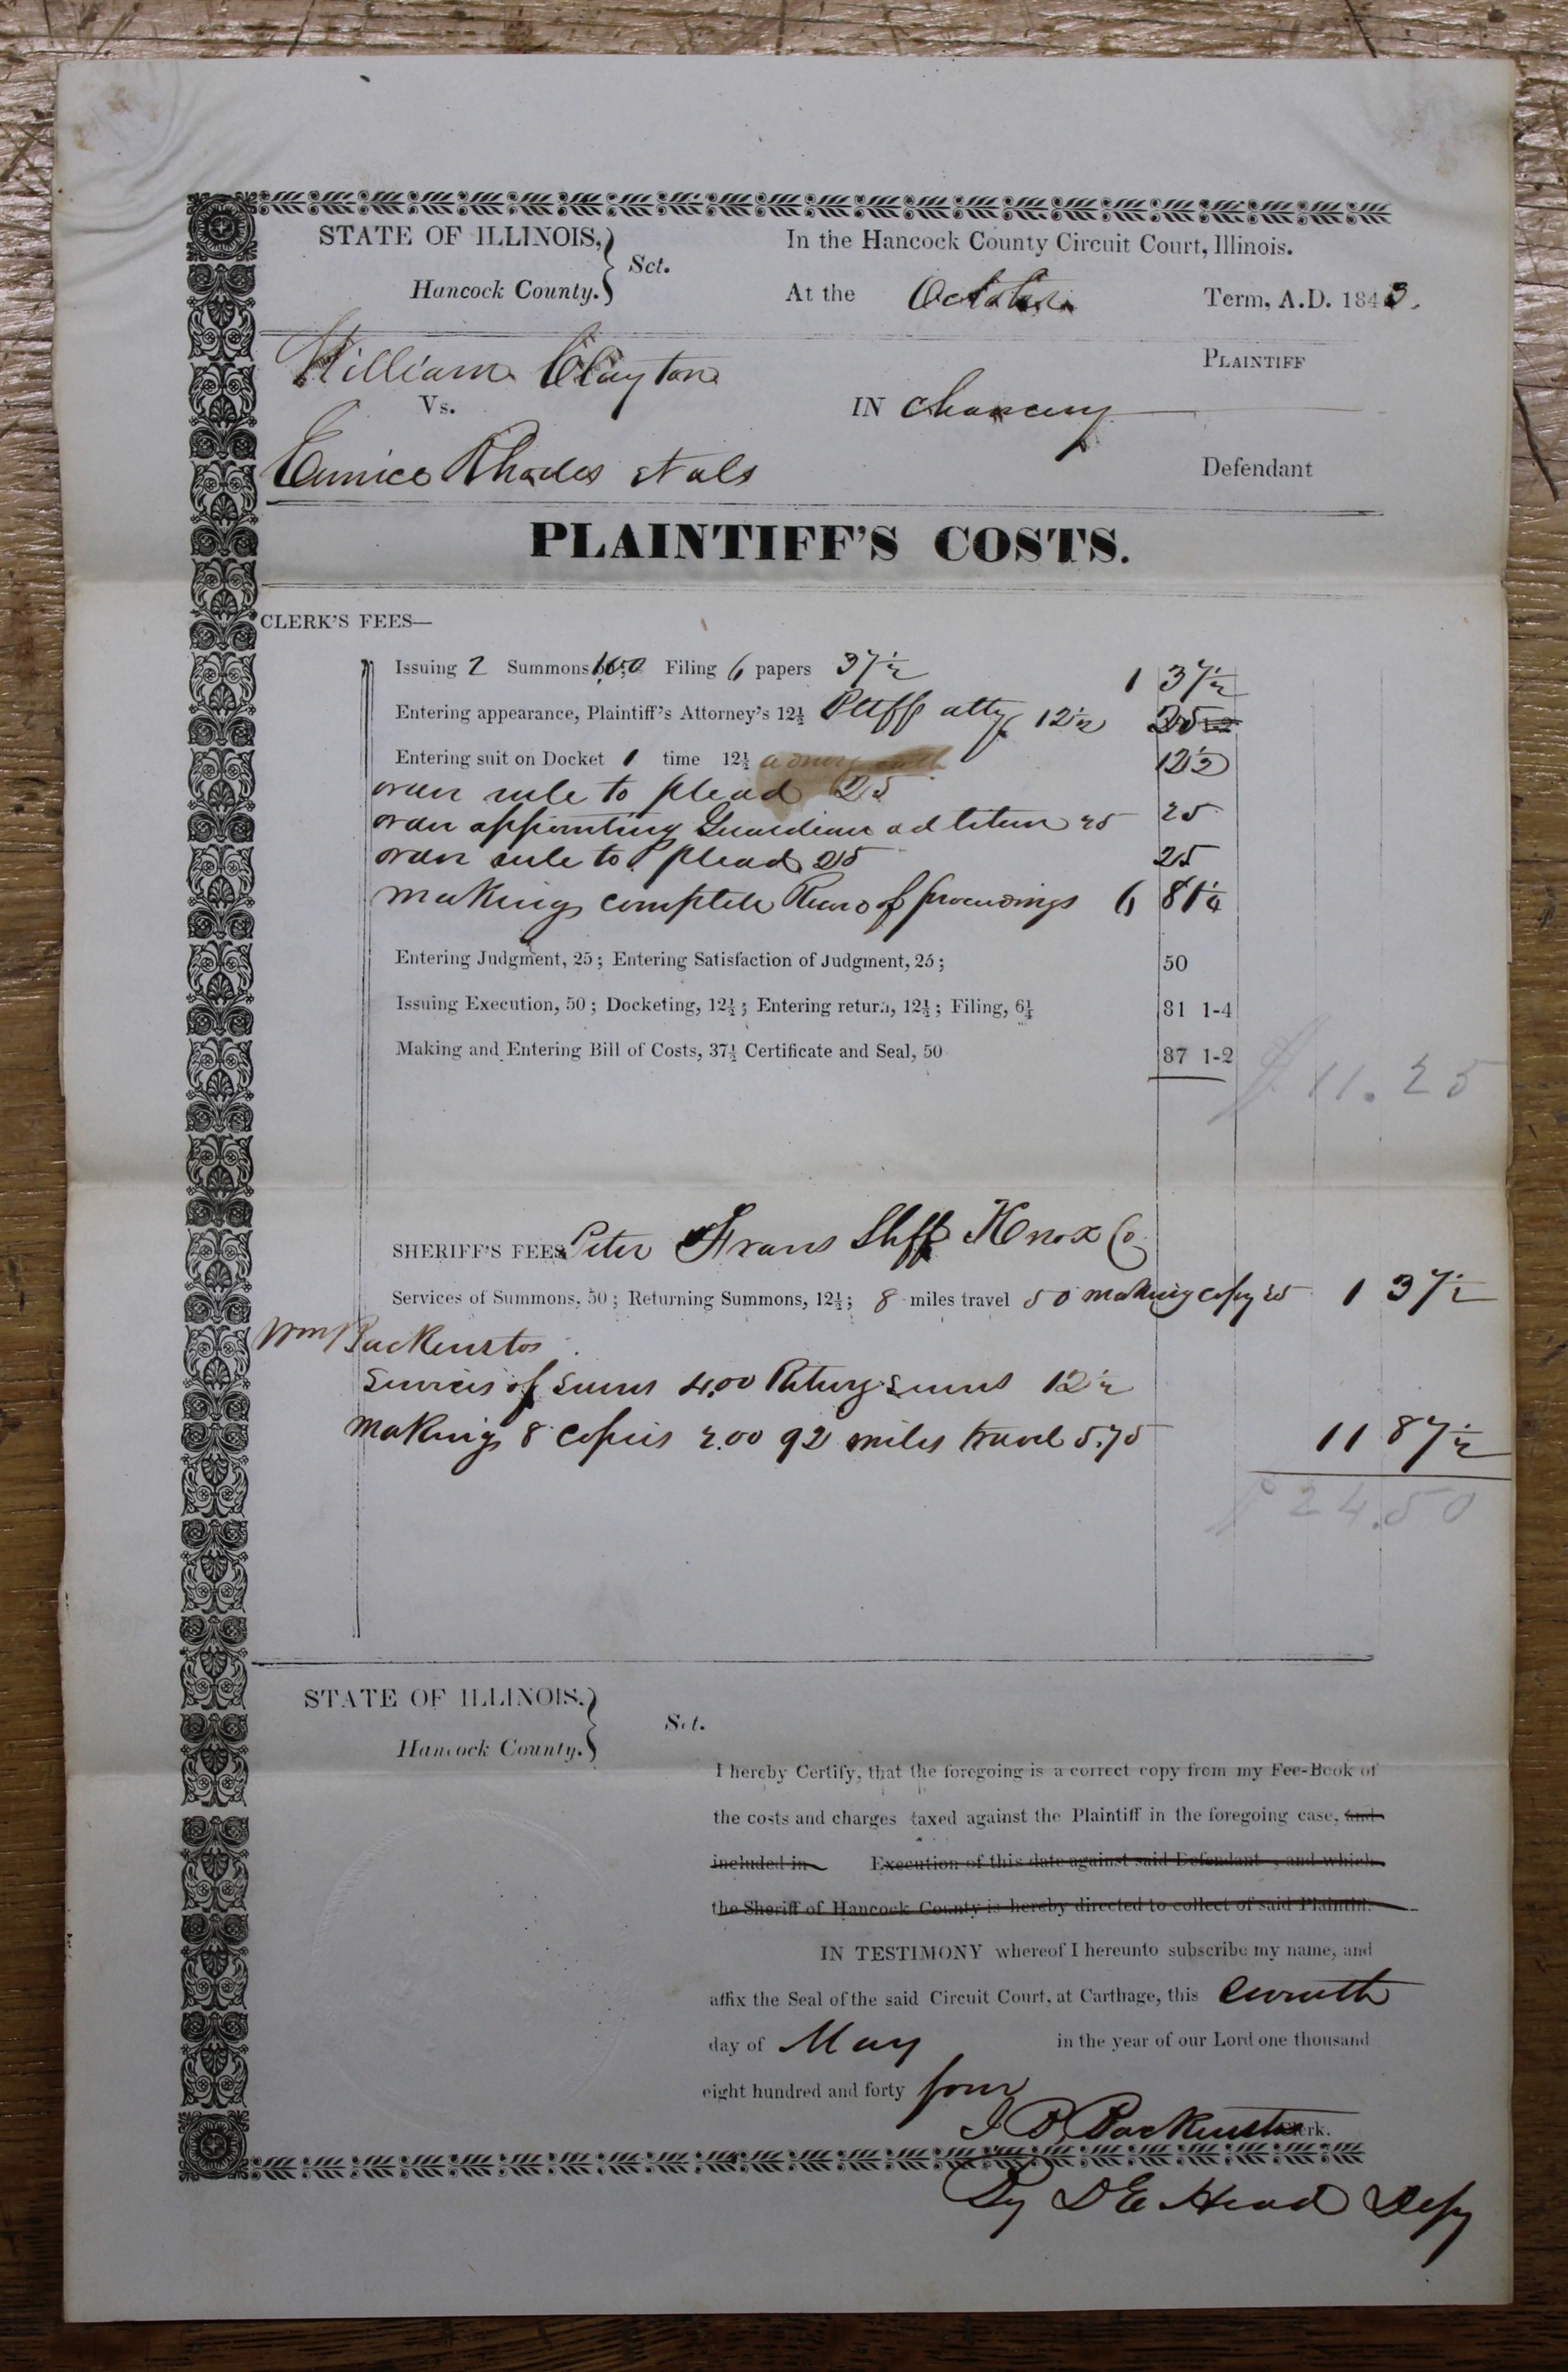 STATE OF ILLINOIS, } Sct. In the Hancock County Circuit Court, Illinois.
Hancock County. At the October Term, A.D. 1843.
William Clayton PLAINTIFF
Vs. IN Chancery
Eunice Rhodes et als Defendant
PLAINTIFF'S COSTS.
CLERK'S FEES—
Issuing 2 Summons 1.00 Filing 6 papers 37½ 1 37½
Entering appearance, Plaintiff's Attorney's 12½ Pltffs atty 12½ 25
Entering suit on Docket 1 time 12½ 12½
order rule to plead 25
order appointing Guardian ad litem 25 25
order rule to plead 25 25
making complete Record of proceedings 6 81¼
Entering Judgment, 25; Entering Satisfaction of Judgment, 25; 50
Issuing Execution, 50; Docketing, 12½; Entering return, 12½; Filing, 6¼ 81 1-4
Making and Entering Bill of Costs, 37½ Certificate and Seal, 50 87 1-2
$11.25
SHERIFF'S FEES Peter Frans Shff Knox Co
Services of Summons, 50; Returning Summons, 12½; 8 miles travel 50 making copy 25 1 37½
Wm Backenstos
Services of Sums 4.00 Returg sums 12½
making 8 copies 2.00 92 miles travel 5.75 11 87½
$24.50
STATE OF ILLINOIS. } Sct.
Hancock County.
I hereby Certify, that the foregoing is a correct copy from my Fee-Book of
the costs and charges taxed against the Plaintiff in the foregoing case, and
included in Execution of this date against said Defendant , and which
the Sheriff of Hancock County is hereby directed to collect of said Plaintiff.
IN TESTIMONY whereof I hereunto subscribe my name, and
affix the Seal of the said Circuit Court, at Carthage, this
day of May in the year of our Lord one thousand
eight hundred and forty four
J B Backenstos Clerk.
By D E Head Depy